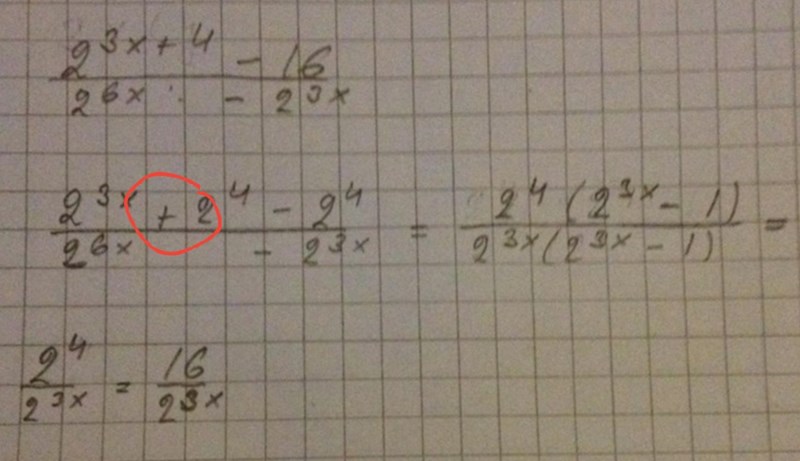 2^{3x+4} - 16
2^{6x} - 2^{3x}
2^{3x} + 2^4 - 2^4 = 2^4 (2^{3x} - 1) =
2^{6x} - 2^{3x} 2^{3x} (2^{3x} - 1)
2^4 = 16
2^{3x} 2^{3x}